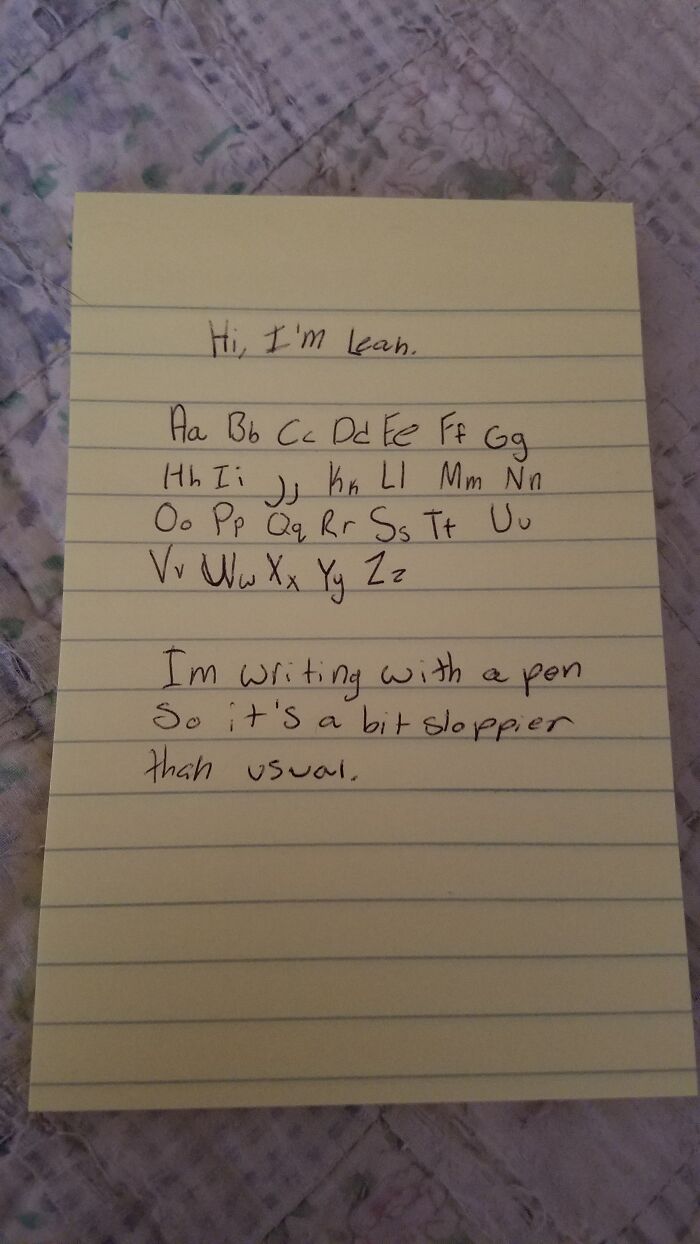 Hi, I'm Leah.
Aa Bb Cc Dd Ee Ff Gg
Hh Ii Jj Kk Ll Mm Nn
Oo Pp Qq Rr Ss Tt Uu
Vv Ww Xx Yy Zz
Im writing with a pen
So it's a bit sloppier
than usual.